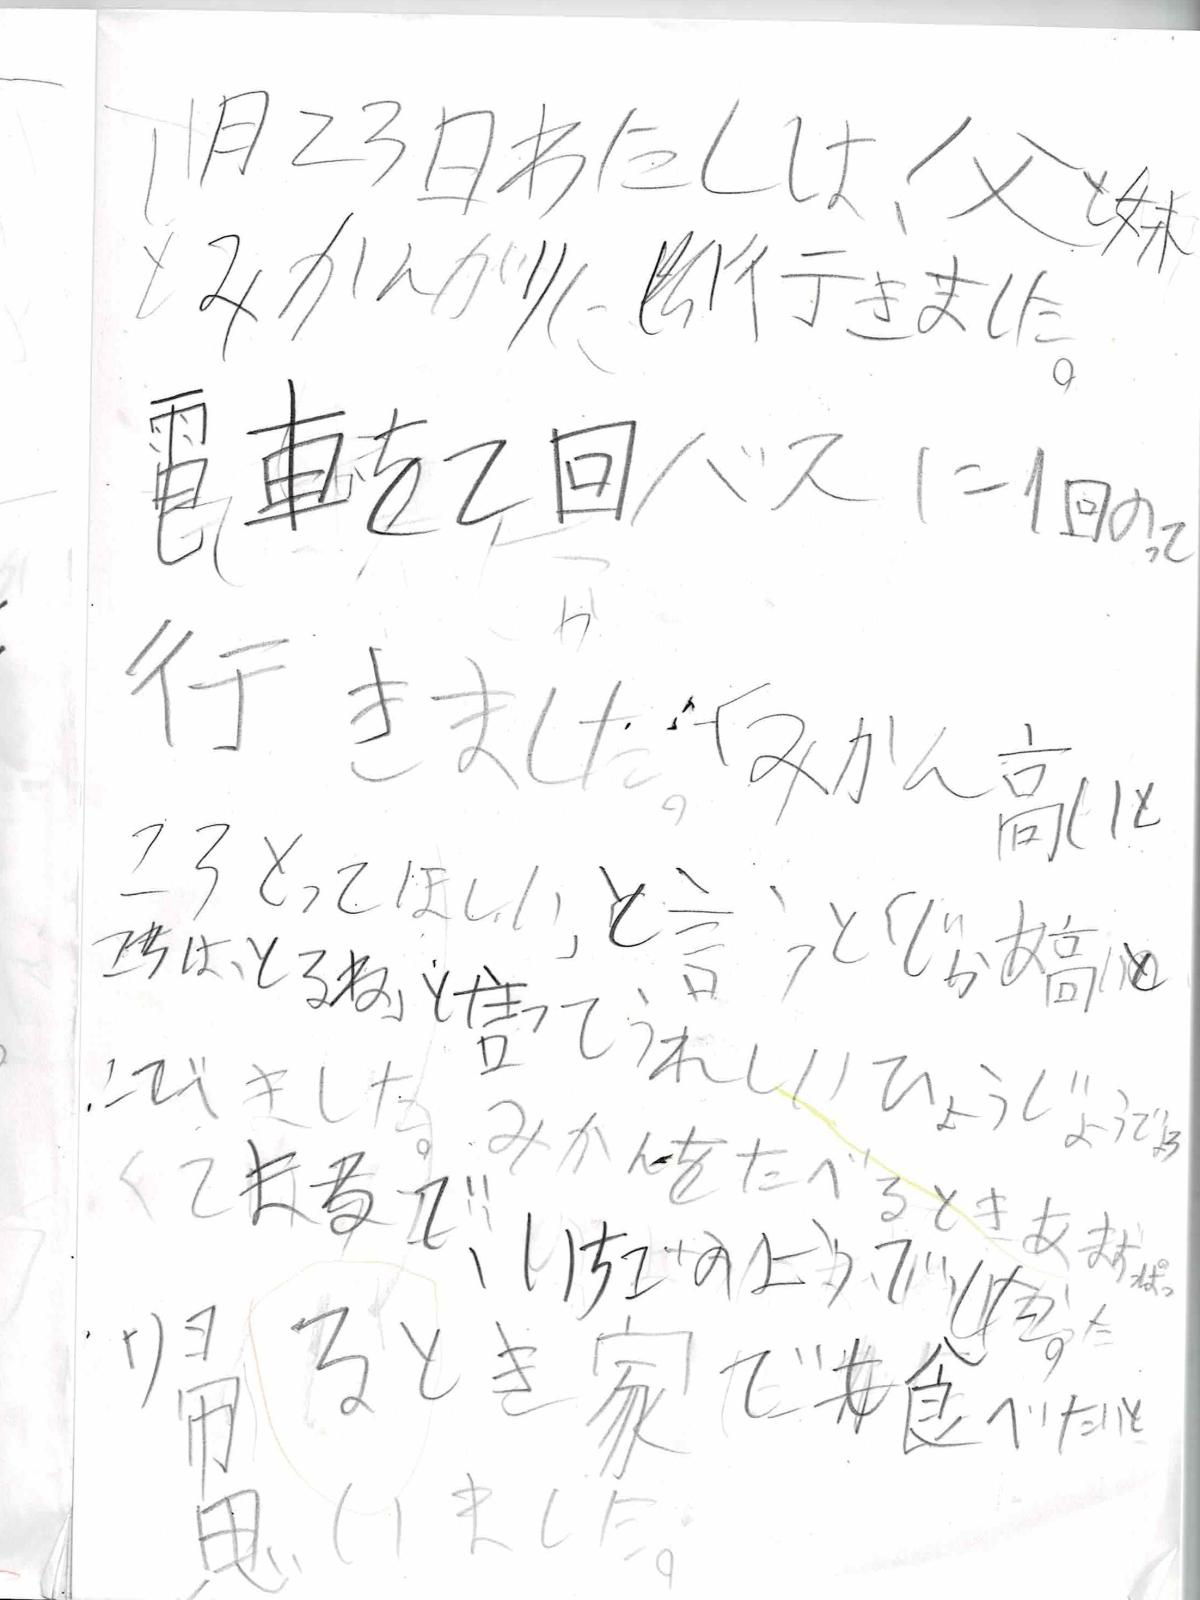 11月23日わたしは、父と妹
とみかんがりに行きました。
電車を2回バスに1回のって
行きました。「みかん高いと
ころとってほしい」と言うと「じゃあ高いと
こはとるね」と言ってうれしいひょうじょうでよろ
こびました。みかんをたべるときあまずっぱ
くてまるで、いちごのようでした
帰るとき家で食べたいと
思いました。